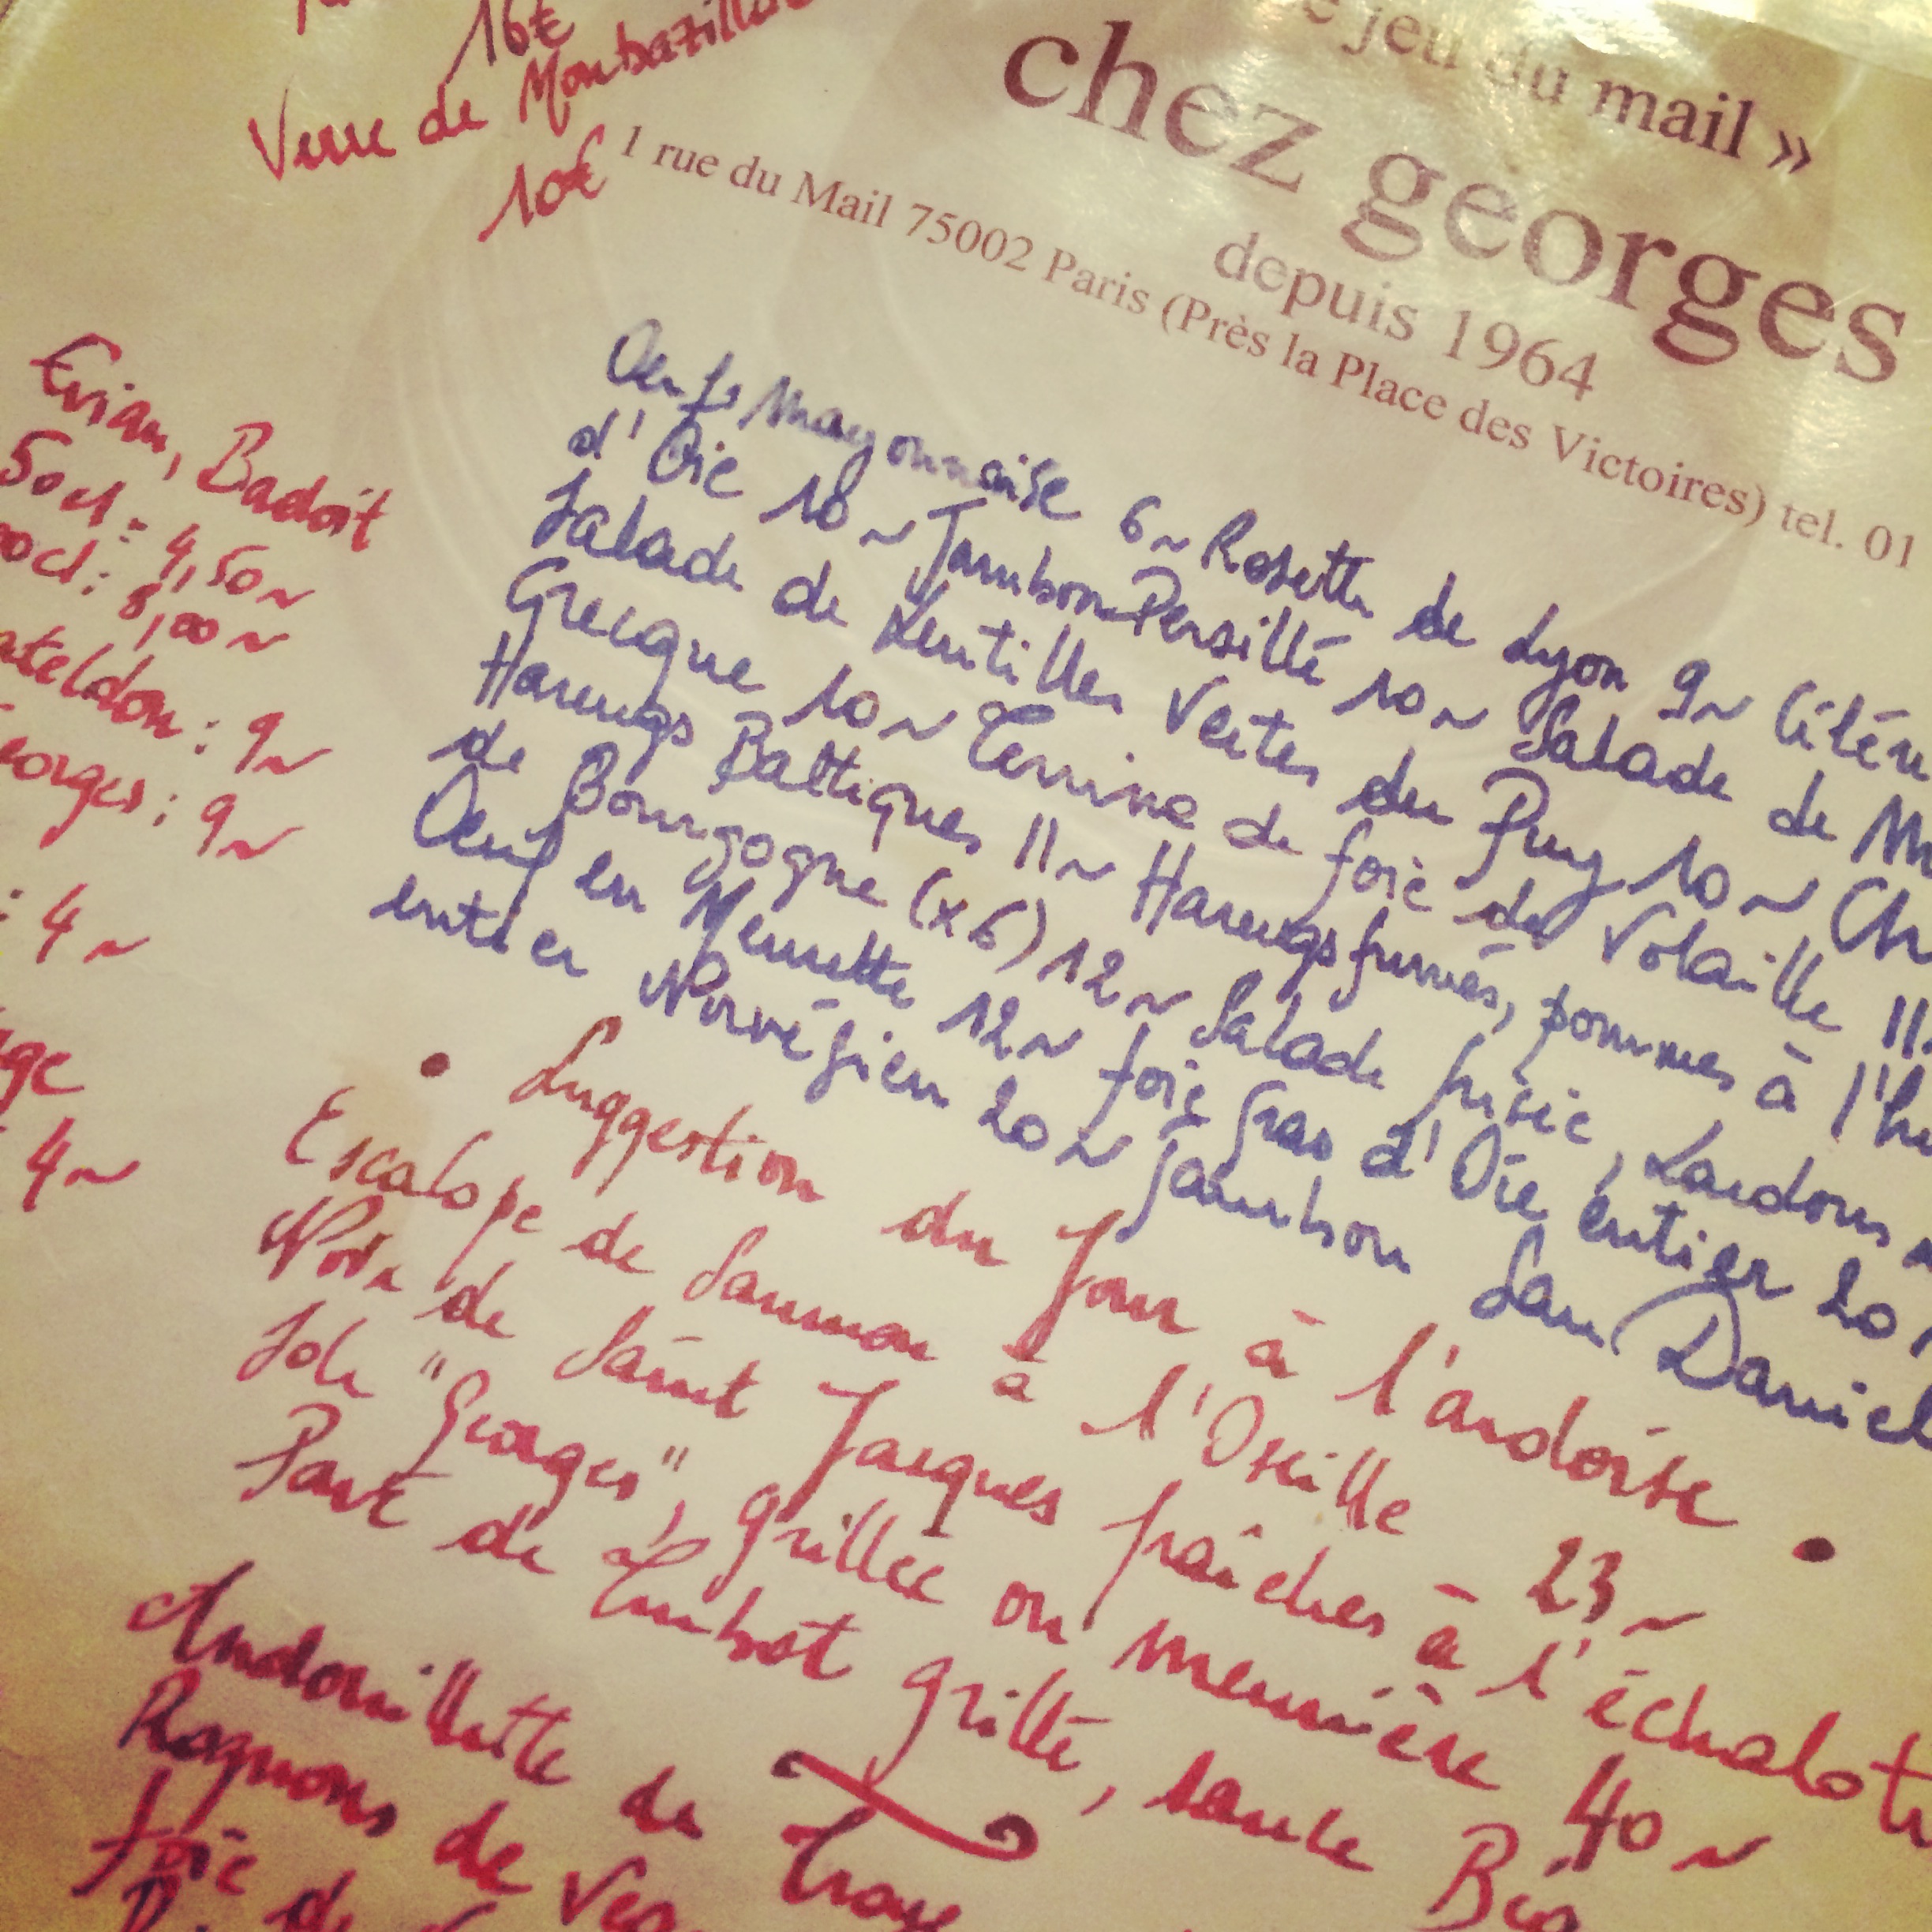 16€
Verre de Monbazillac
10€
jeu du mail »
chez georges
depuis 1964
1 rue du Mail 75002 Paris (Près la Place des Victoires) tel. 01
Evian, Badoit
50cl: 4,50~
8,00~
9~
eorges: 9~
: 4~
4~
Oeufs Mayonnaise 6~ Rosette de Lyon 9~
d'Oie 10~ Jambon Persillé 10~ Salade de
Salade de Lentilles Vertes du Puy 10~
Grecque 10~ Terrine de foie de Volaille 11
Harengs Baltiques 11~ Harengs fumés, pommes à l'hu
de Bourgogne (x6) 12~ Salade frisée, Lardons
Oeuf en Meurette 12~ foie gras d'Oie entier 20
entier Norvégien 20~ Jambon San Daniel
• Suggestion du Jour à l'ardoise •
Escalope de Saumon à l'Oseille 23~
Noix de Saint Jacques fraîches à l'échalot
Sole "Georges", grillée ou meunière 40~
Pavé de Turbot grillé, sauce Béa
Andouillette de Troy
Rognons de Vea
foie de